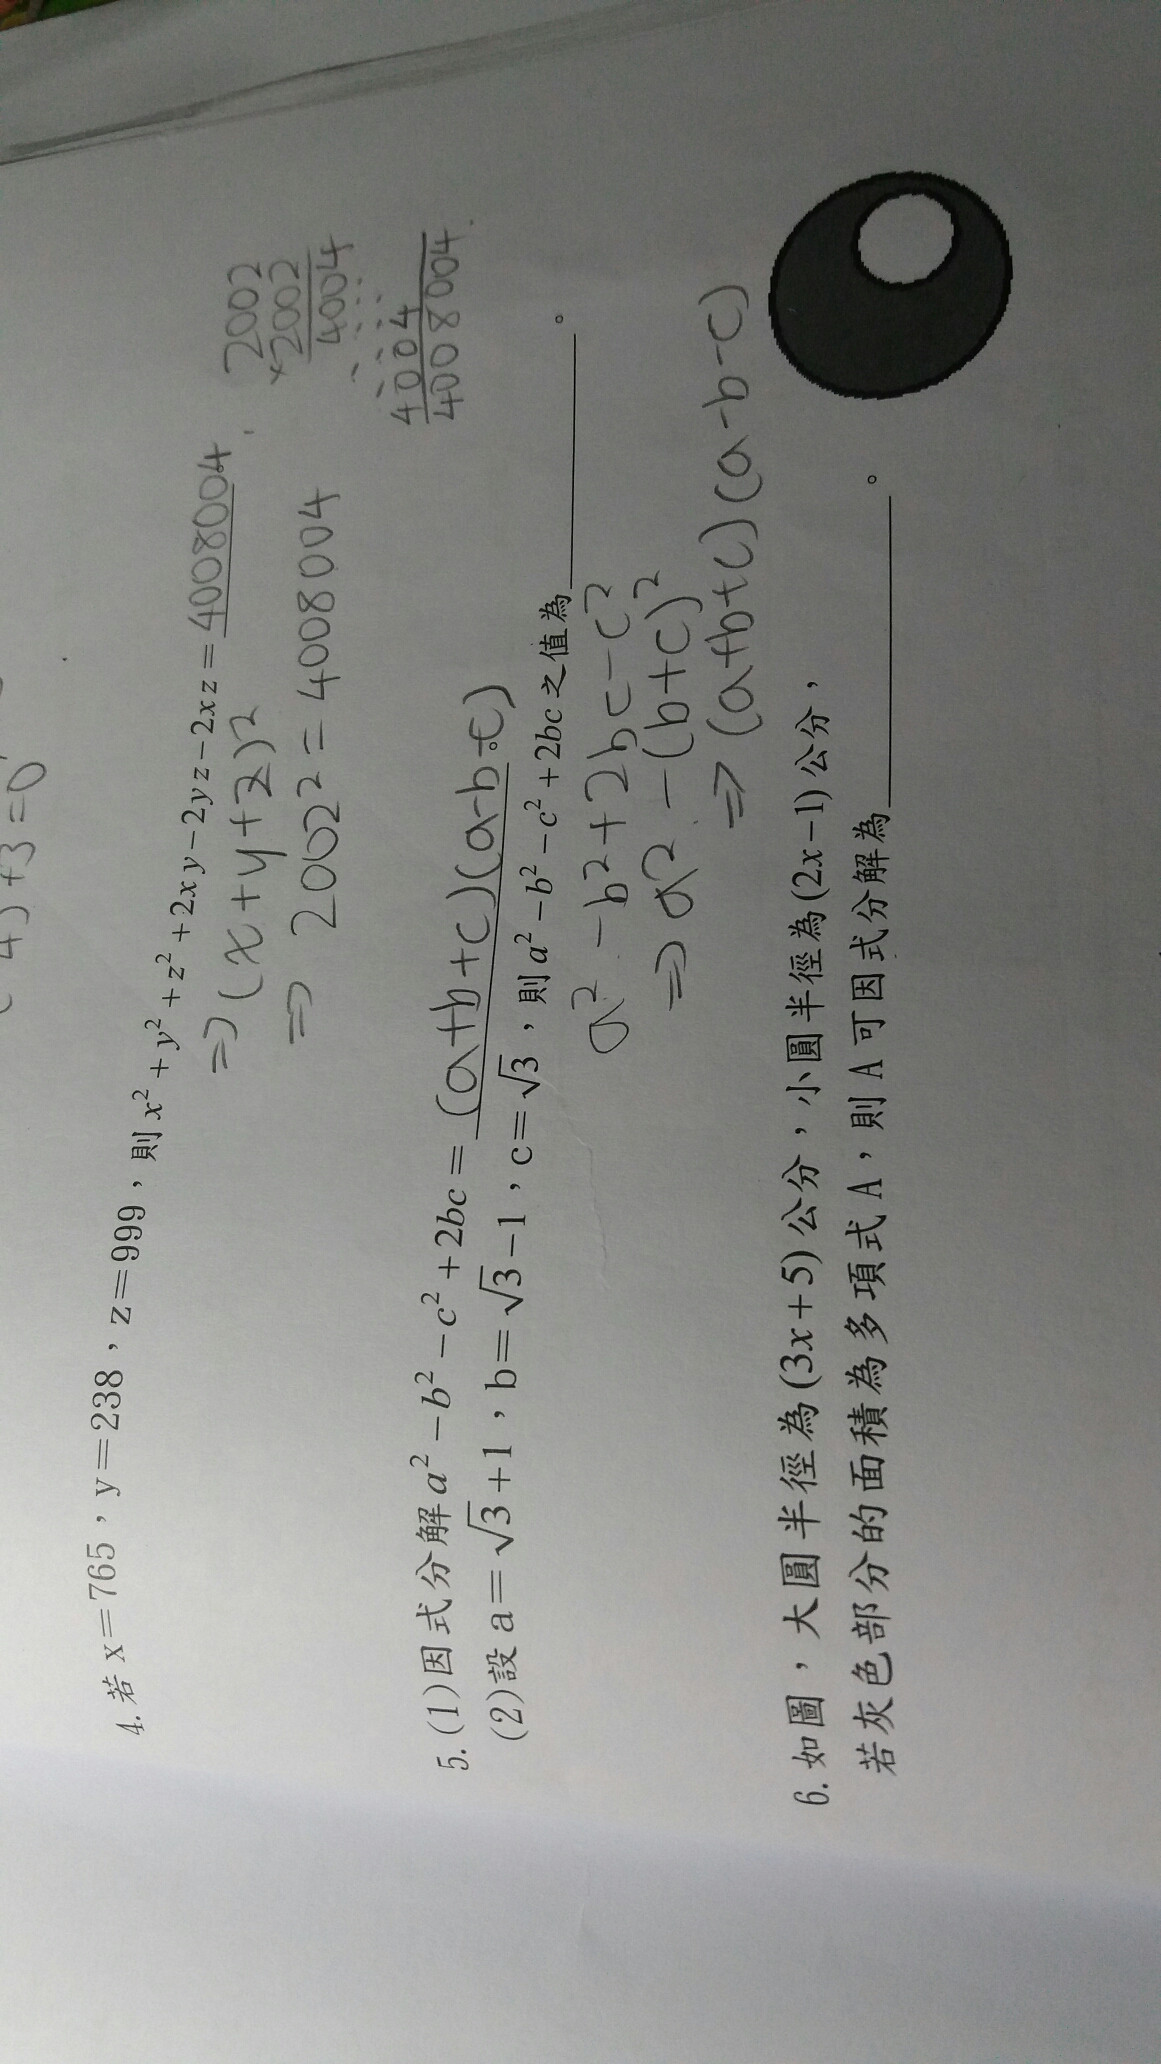 4)+3=0
4. 若 x=765，y=238，z=999，則 x²+y²+z²+2xy−2yz−2xz=4008004.
⇒(x+y+z)²
⇒ 2002²=4008004
2002
×2002
4004
4004
4008004.
5. (1)因式分解 a²−b²−c²+2bc=(a+b+c)(a-b-c)
(2)設 a=√3+1，b=√3−1，c=√3，則 a²−b²−c²+2bc 之值為。
a²-b²+2bc-c²
⇒ a²-(b+c)²
⇒ (a+b+c)(a-b-c)
6. 如圖，大圓半徑為(3x+5)公分，小圓半徑為(2x−1)公分，
若灰色部分的面積為多項式 A，則 A 可因式分解為。